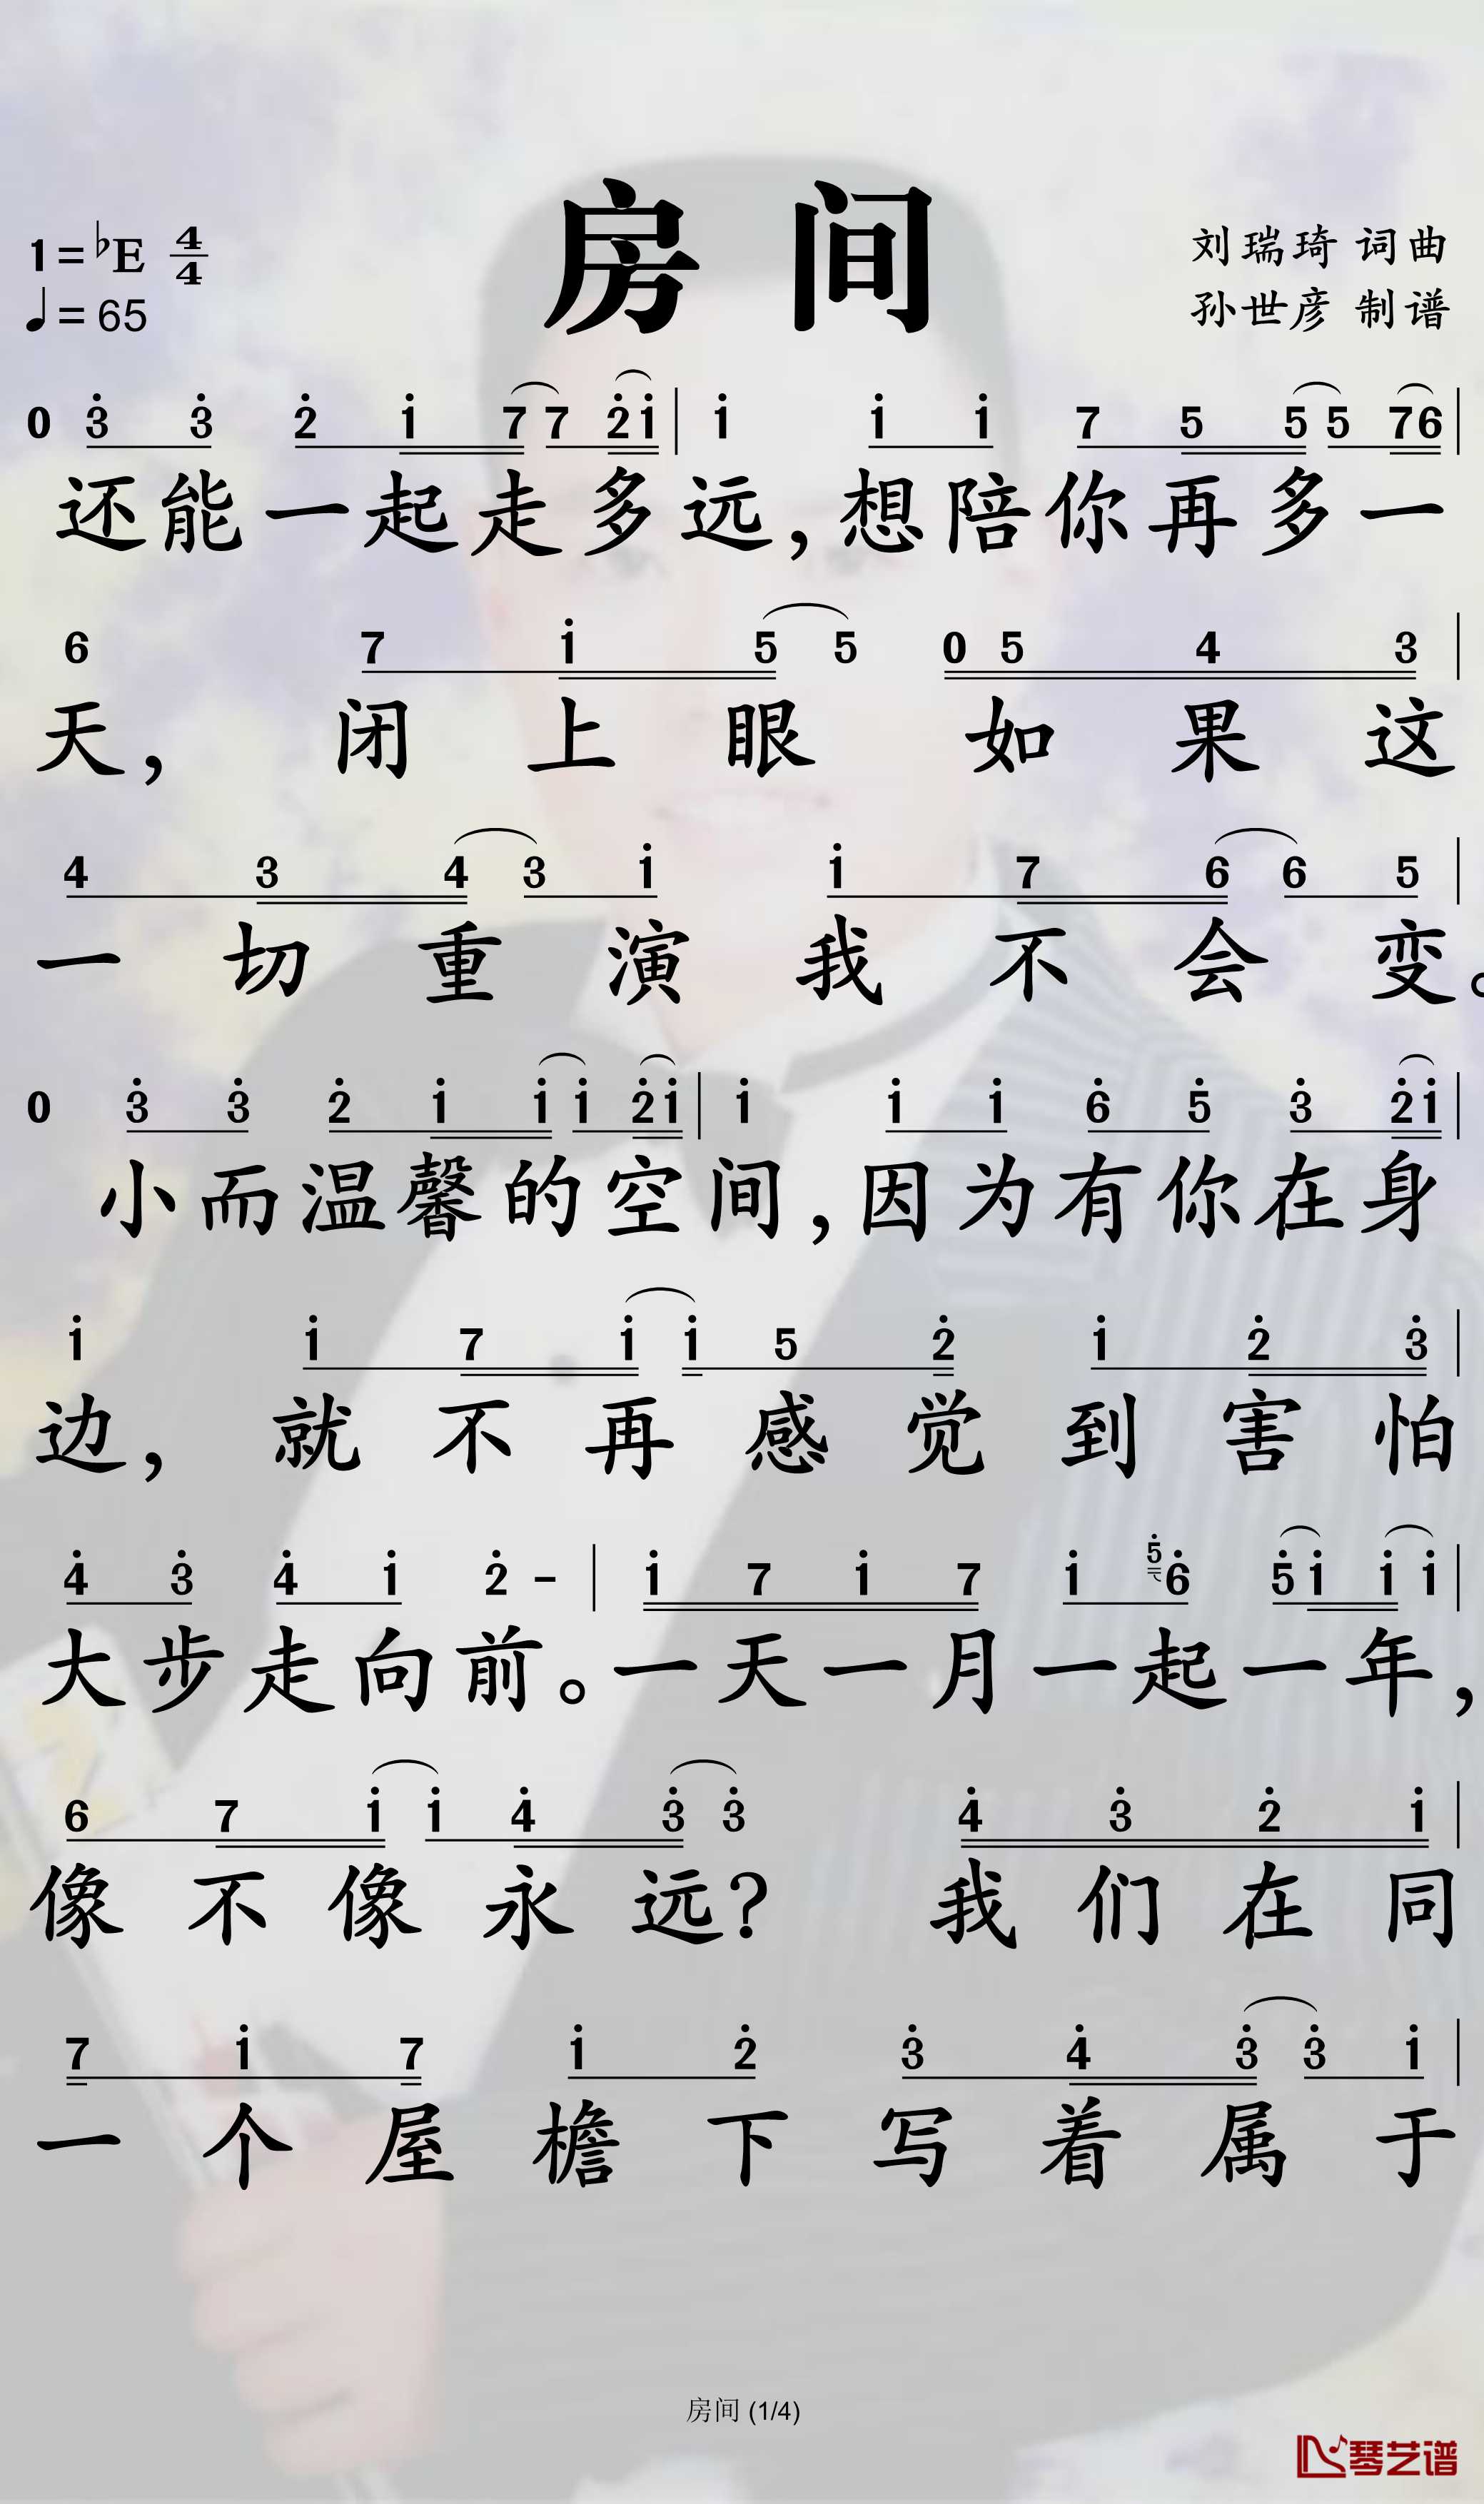 房间
1=♭E 4/4
♩=65
刘瑞琦 词曲
孙世彦 制谱
0 3̇ 3̇ 2̇ 1̇ 7 7 2̇ 1̇ | 1̇ 1̇ 1̇ 7 5 5 5 7 6 |
还能一起走多远,想陪你再多一
6 7 1̇ 5 5 0 5 4 3 |
天,闭上眼如果这
4 3 4 3 1̇ 1̇ 7 6 6 5 |
一切重演我不会变。
0 3̇ 3̇ 2̇ 1̇ 1̇ 1̇ 2̇ 1̇ | 1̇ 1̇ 1̇ 6̇ 5̇ 3̇ 2̇ 1̇ |
小而温馨的空间,因为有你在身
1̇ 1̇ 7 1̇ 1̇ 5 2̇ 1̇ 2̇ 3̇ |
边,就不再感觉到害怕
4̇ 3̇ 4̇ 1̇ 2̇ - | 1̇ 7 1̇ 7 1̇ 5̇ 6̇ 5̇ 1̇ 1̇ 1̇ |
大步走向前。一天一月一起一年,
6 7 1̇ 1̇ 4̇ 3̇ 3̇ 4̇ 3̇ 2̇ 1̇ |
像不像永远?我们在同
7 1̇ 7 1̇ 2̇ 3̇ 4̇ 3̇ 3̇ 1̇ |
一个屋檐下写着属于
房间 (1/4)
琴艺谱